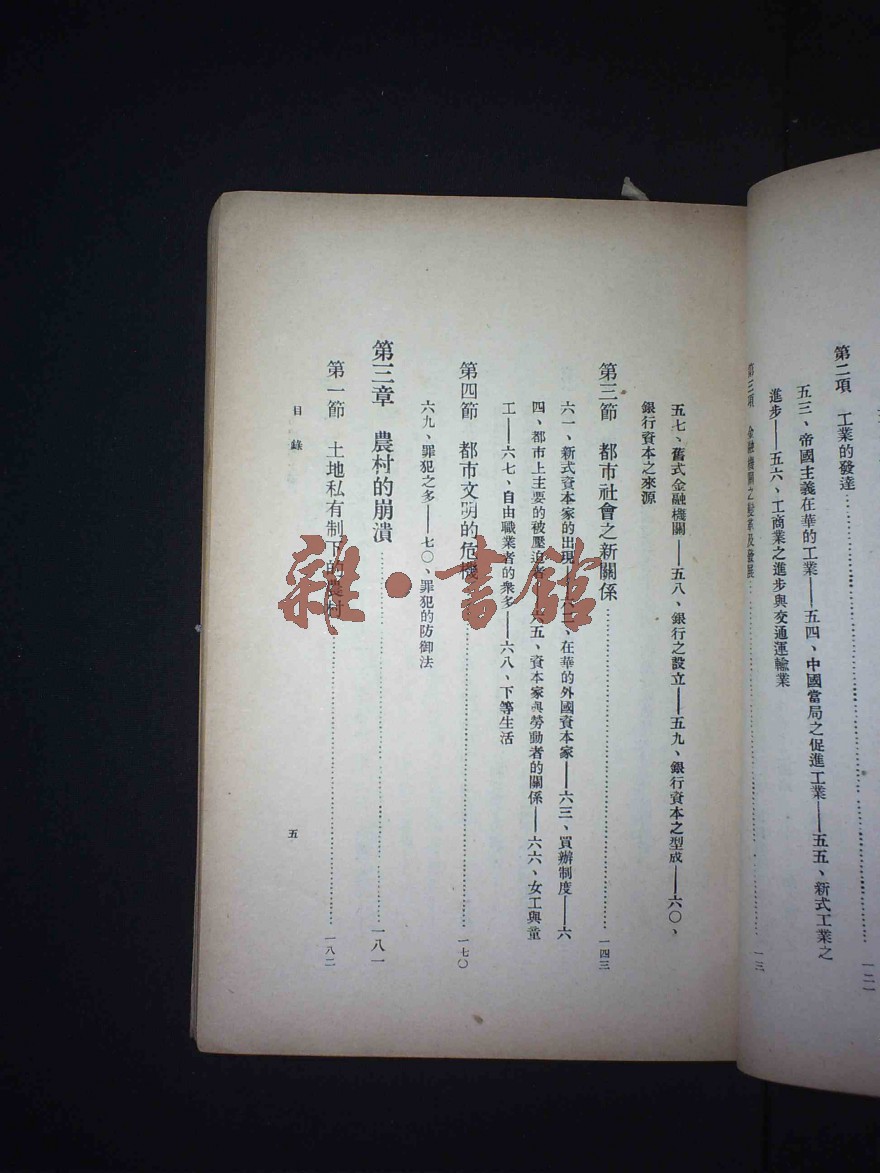 第二項　工業的發達…………一二一
五三、帝國主義在華的工業——五四、中國當局之促進工業——五五、新式工業之
進步——五六、工商業之進步與交通運輸業
第三項　金融機關之變革及發展…………一三
五七、舊式金融機關——五八、銀行之設立——五九、銀行資本之型成——六〇、
銀行資本之來源
第三節　都市社會之新關係…………一四三
六一、新式資本家的出現——六二、在華的外國資本家——六三、買辦制度——六
四、都市上主要的被壓迫者——六五、資本家與勞動者的關係——六六、女工與童
工——六七、自由職業者的衆多——六八、下等生活
第四節　都市文明的危機…………一七〇
六九、罪犯之多——七〇、罪犯的防御法
第三章　農村的崩潰…………一八一
第一節　土地私有制下的農村…………一八二
目錄
五
雜·書館